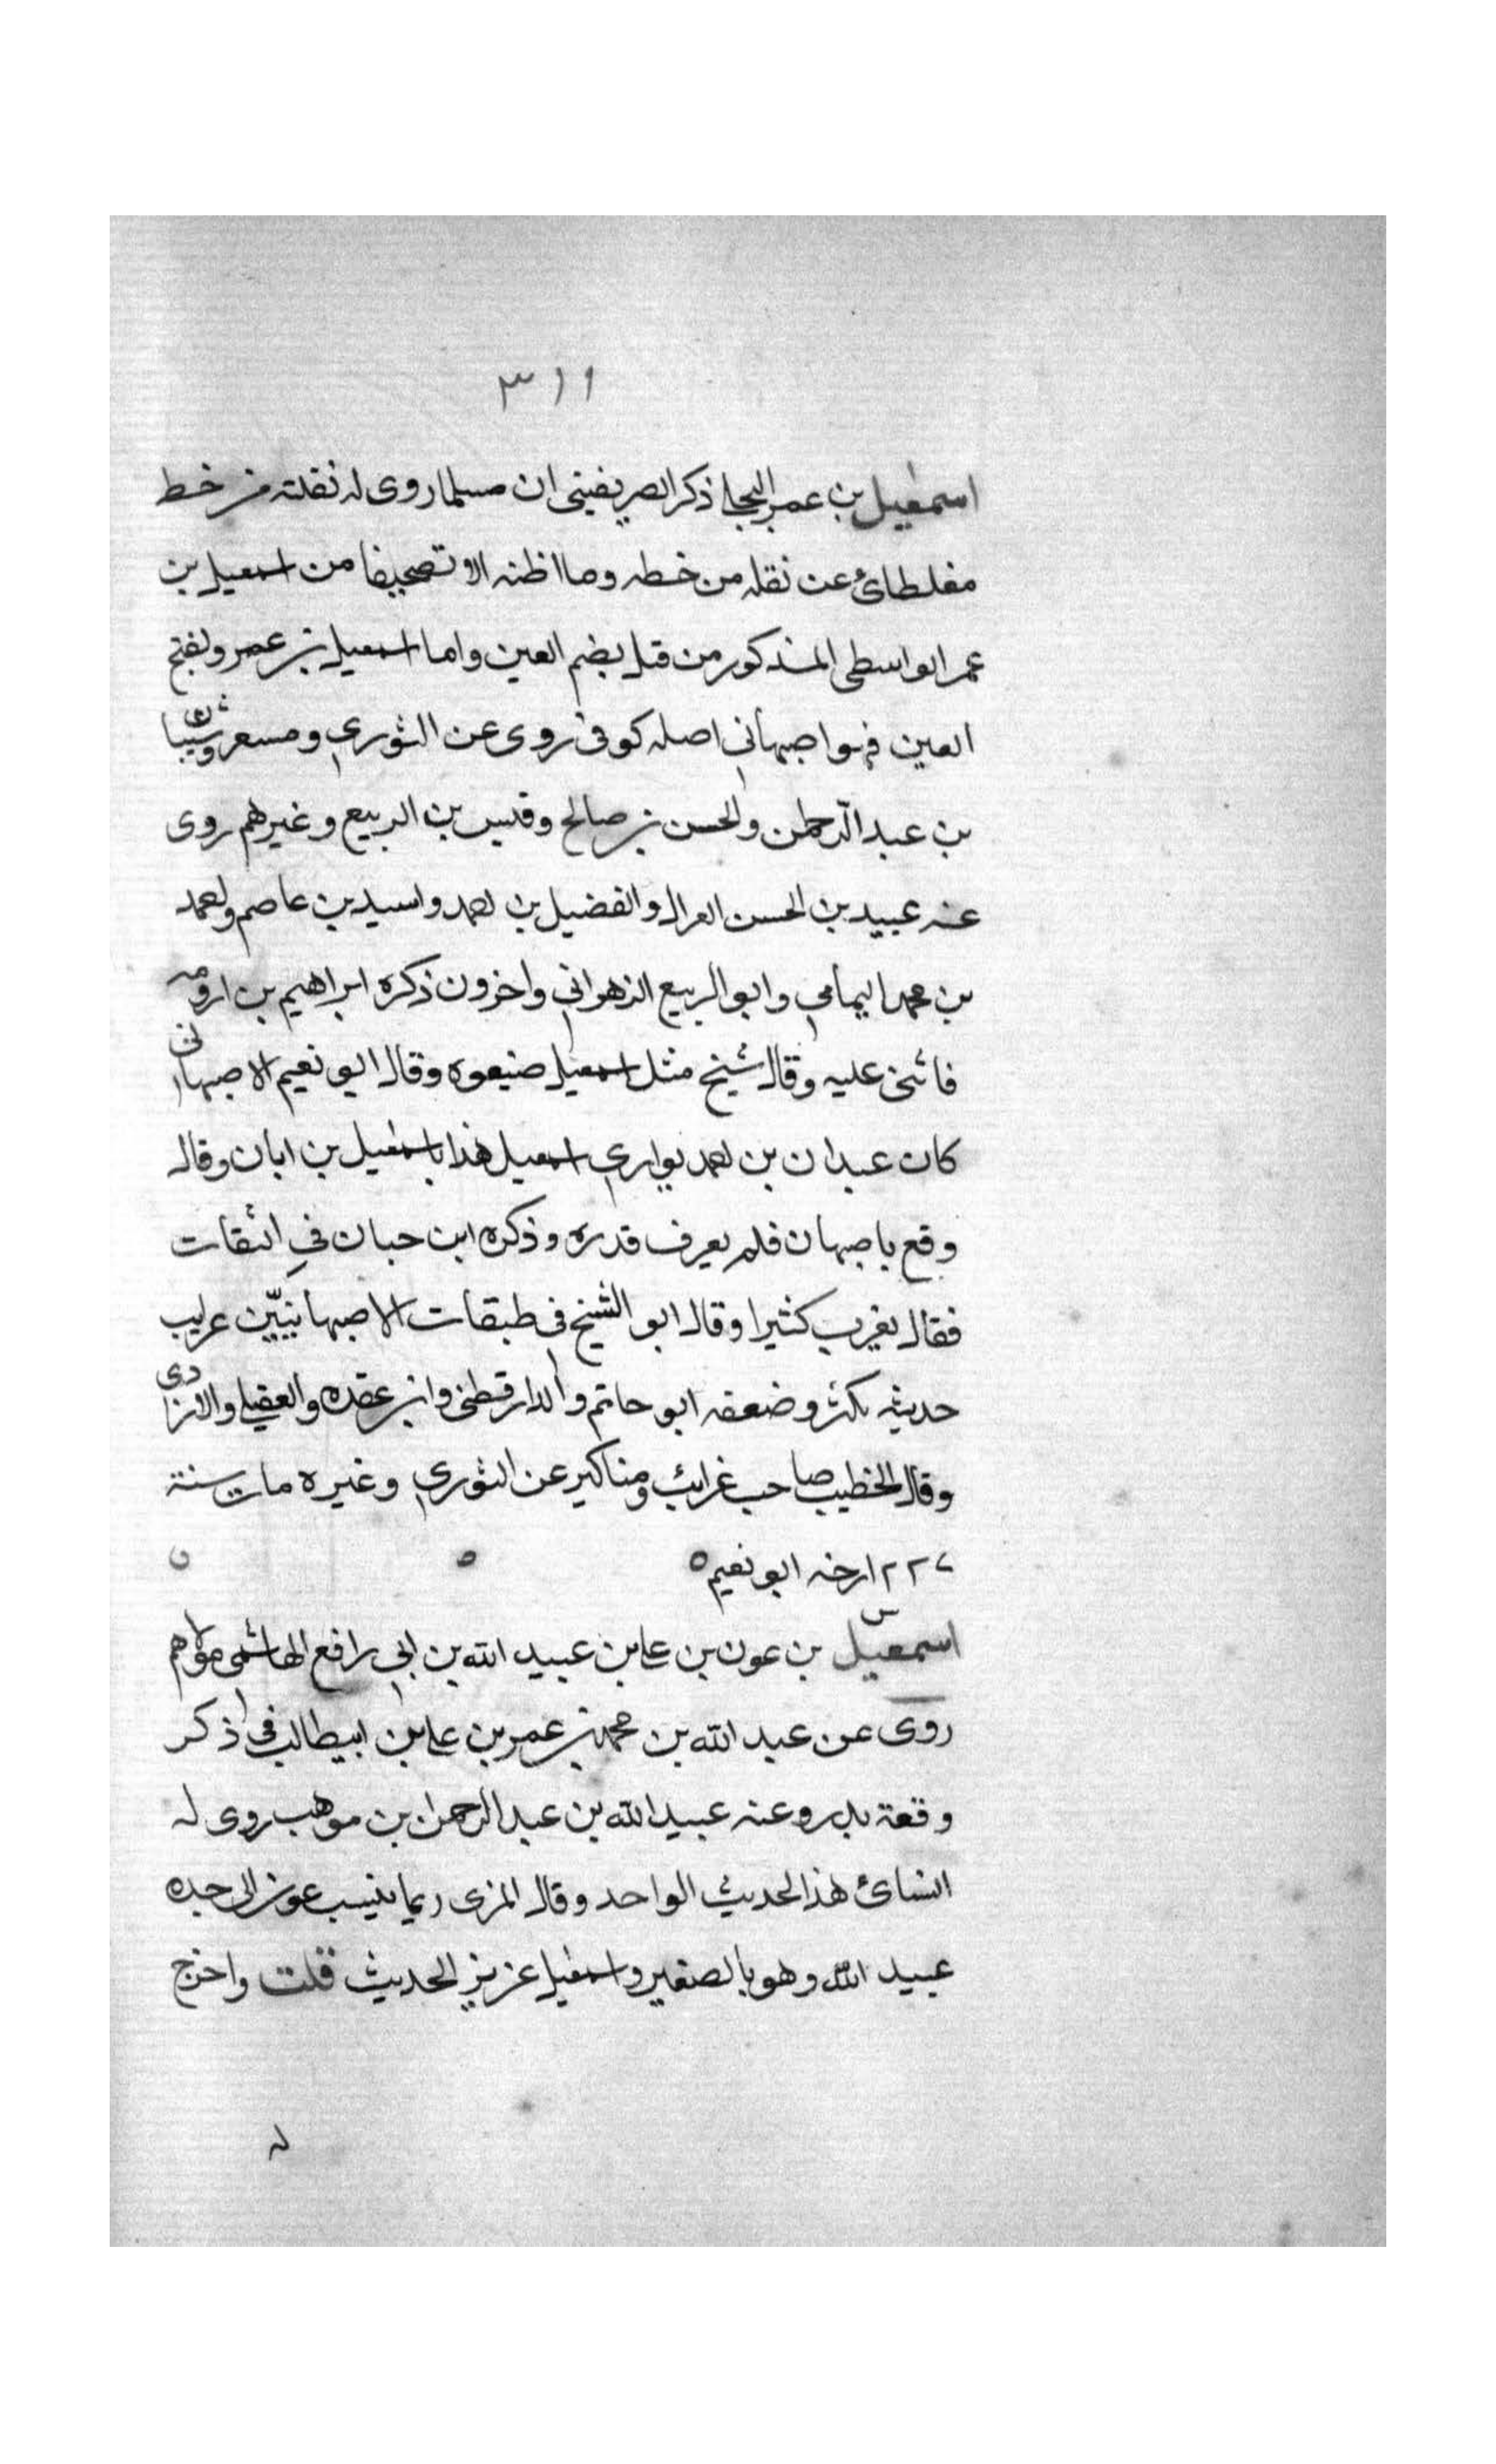 ٣١١
اسمعيل بن عمرو البجلي ذكر الصريفيني ان مسلما روى له نقلته من خط
مغلطائ عن نقله من خطه وما اظنه الا تصحيفا من اسمعيل بن
عمر الواسطى المذكور من قبل بضم العين واما اسمعيل بن عمرو بفتح
العين فهو اصبهاني اصله كوفى روى عن الثوري ومسعر وشيبان
بن عبد الرحمن والحسن بن صالح وقيس بن الربيع وغيرهم روى
عنه عبيد بن الحسن الغزال والفضيل بن احمد واسيد بن عاصم واحمد
بن محمد اليمامي وابو الربيع الزهراني واخرون ذكره ابراهيم بن ارومه
فاثنى عليه وقال شيخ مثل اسمعيل ضيعوه وقال ابو نعيم الاصبهانى
كان عبدان بن احمد يوازي اسمعيل هذا باسمعيل بن ابان وقال
وقع باصبهان فلم يعرف قدره وذكره ابن حبان في الثقات
فقال يغرب كثيرا وقال ابو الشيخ فى طبقات الاصبهانيين غرايب
حديثه تكثر وضعفه ابو حاتم والدارقطنى وابن عقده والعقيلي والازدى
وقال الخطيب صاحب غرائب ومناكير عن الثوري وغيره مات سنة
٢٢٧ ارخه ابو نعيم ٥ ٥ ٥
س
اسمعيل بن عون بن علي بن عبيد الله بن ابي رافع الهاشمى مولاهم
روى عن عبد الله بن محمد بن عمر بن علي بن ابيطالب فى ذكر
وقعة بدر وعنه عبيد الله بن عبد الرحمن بن موهب روى له
النسائ هذا الحديث الواحد وقال المزى ربما ينسب عون الى جده
عبيد الله وهو بالصغير واسمعيل عزيز الحديث قلت واخرج
له